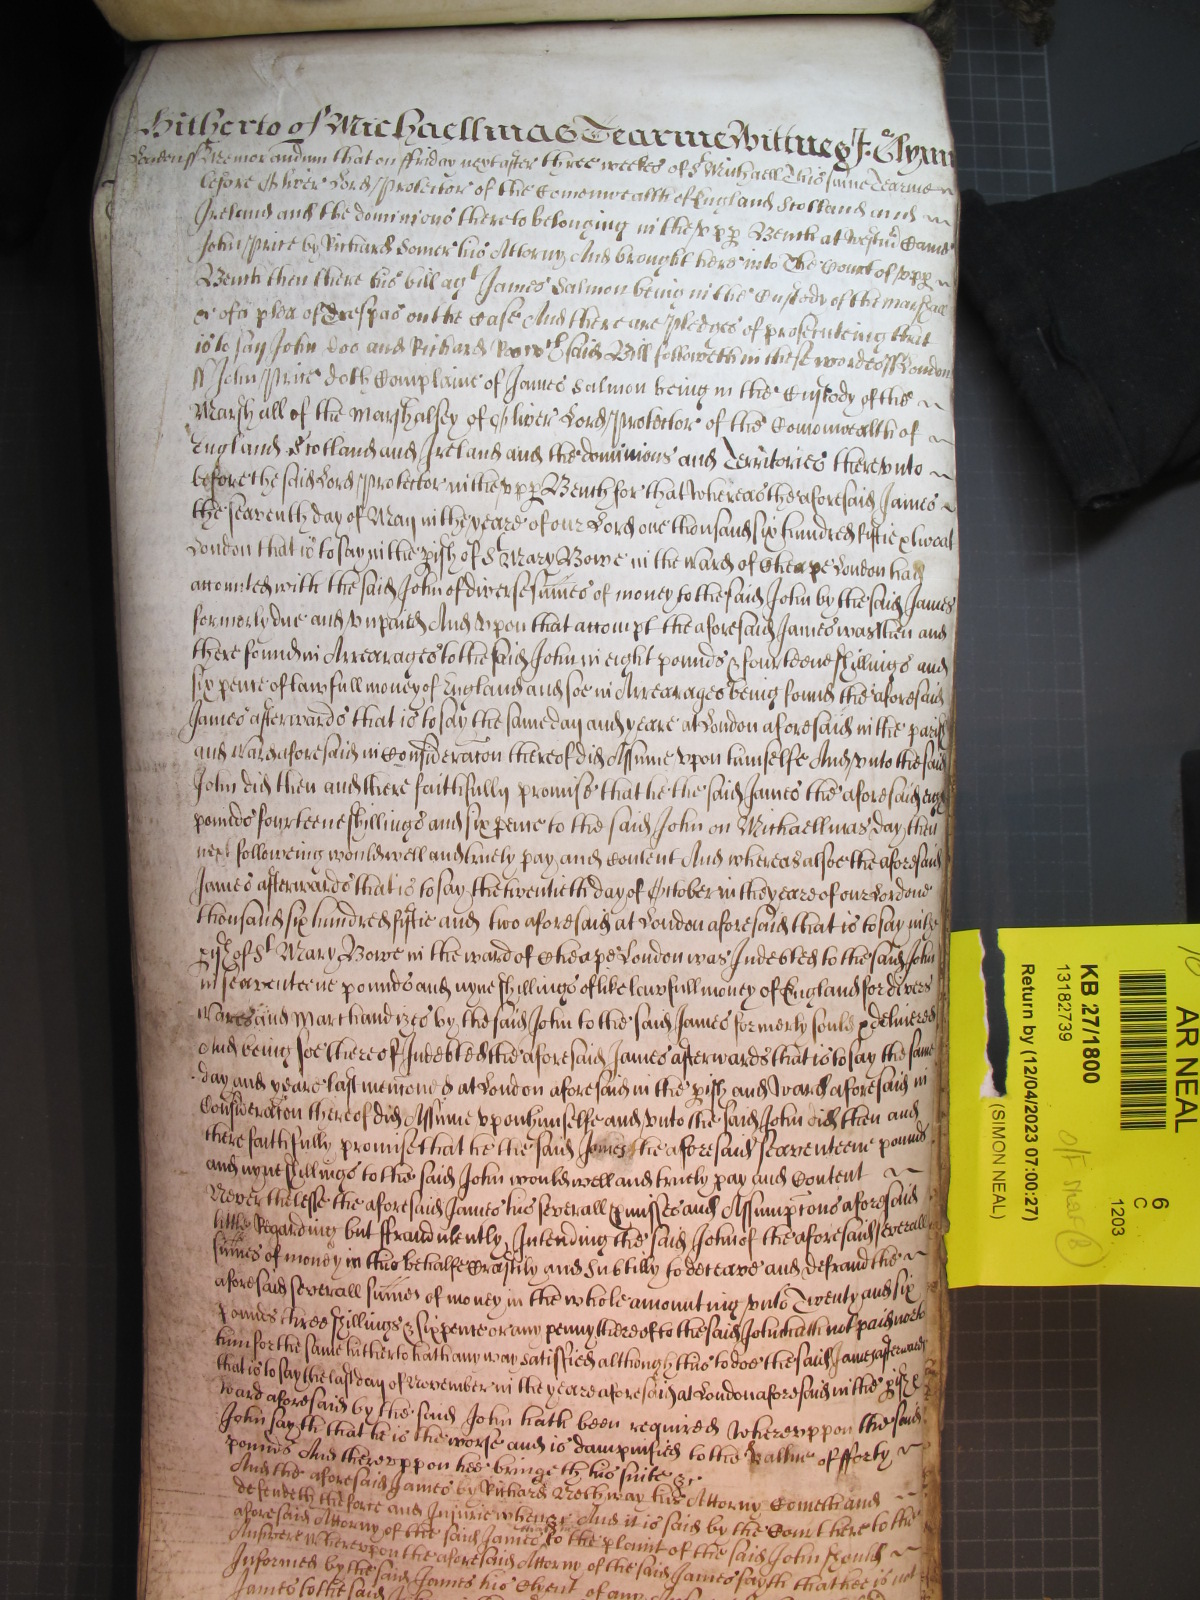 Hitherto of Michaellmas Tearme Wittnes J: Glynn
London ss Memorandum that on ffriday next after three weekes of St Michaell this same Tearme
before Oliver Lord Protector of the Comonwealth of England Scotland and
Ireland and the dominions thereto belonging in the upp Bench at Westmr Came
John Price by Richard Somer his Attorny And brought here into The Court of upp
Bench then there his bill agt James Salmon being in the Custody of the Marshall
&c of a plea of Trespas on the Case And there are pledges of prosecuteing that
is to say John Doo and Richard Roo wch said Bill followeth in these wordes ss London
ss John Price doth Complaine of James Salmon being in the Custody of the
Marshall of the Marshalsey of Oliver Lord Protector of the Comonwealth of
England Scotland and Ireland and the dominions and Territories thereunto
before the said Lord Protector in the upp Bench for that whereas the aforesaid James
the seaventh day of May in the yeare of our Lord one thousand six hundred fiftie & two at
London that is to say in the pish of St Mary Bowe in the ward of Cheape London had
accounted with the said John of diverse sumes of money to the said John by the said James
formerly due and unpaid And upon that accompt the aforesaid James was then and
there found in Arrearages to the said John in eight pounds & fourteene shillings and
six pence of lawfull money of England and soe in Arrearages being found the aforesaid
James afterwards that is to say the same day and yeare at London aforesaid in the parish
and ward aforesaid in Consideracon thereof did Assume upon himselfe And unto the said
John did then and there faithfully promise that he the said James the aforesaid eight
pounds fourteene shillings and six pence to the said John on Michaellmas day then
next followeing would well and truely pay and Content And whereas alsoe the aforesaid
James afterwards that is to say the twentieth day of October in the yeare of our Lord one
thousand six hundred fiftie and two aforesaid at London aforesaid that is to say in the
pish of St Mary Bowe in the ward of Cheape London was Indebted to the said John
in seaventeene pounds and nyne shillings of like lawfull money of England for divers
wares and Marchandizes by the said John to the said James formerly sould & delivered
And being soe thereof Indebted the aforesaid James afterwards that is to say the same
day and yeare last menconed at London aforesaid in the pish and ward aforesaid in
Consideracon thereof did Assume upon himselfe and unto the said John did then and
there faithfully promise that he the said James the aforesaid seaventeene pounds
and nyne shillings to the said John would well and truely pay and Content
Neverthelesse the aforesaid James his severall pmisses and Assumptons aforesaid
little Regarding but ffraudulently Intending the said John of the aforesaid severall
sumes of money in this behalfe Craftily and Subtilly to deceave and defraud the
aforesaid severall sumes of money in the whole amounting unto Twenty and six
pounds three shillings & six pence or any penny thereof to the said John hath not paid nor to
him for the same hitherto hath any way satisfied although this to doe the said James afterwards
that is to say the last day of November in the yeare aforesaid at London aforesaid in the pish &
ward aforesaid by the said John hath been required Whereuppon the said
John sayth that he is the worse and is dampnified to the vallue of fforty
pounds And thereuppon hee bringeth his suite &c
And the aforesaid James by Richard Rethway his Attorny Cometh and
defendeth the force and Injurie when &c And it is said by the Court here to the
aforesaid Attorny of the said James to the plaint of the said John should
Answere whereupon the aforesaid Attorny of the said James sayth that hee is not
Informed by the said James his Clyent of any
James to the said John
AR NEAL
6
C
1203
KB 27/1800
13182739
Return by (12/04/2023 07:00:27)
(SIMON NEAL)